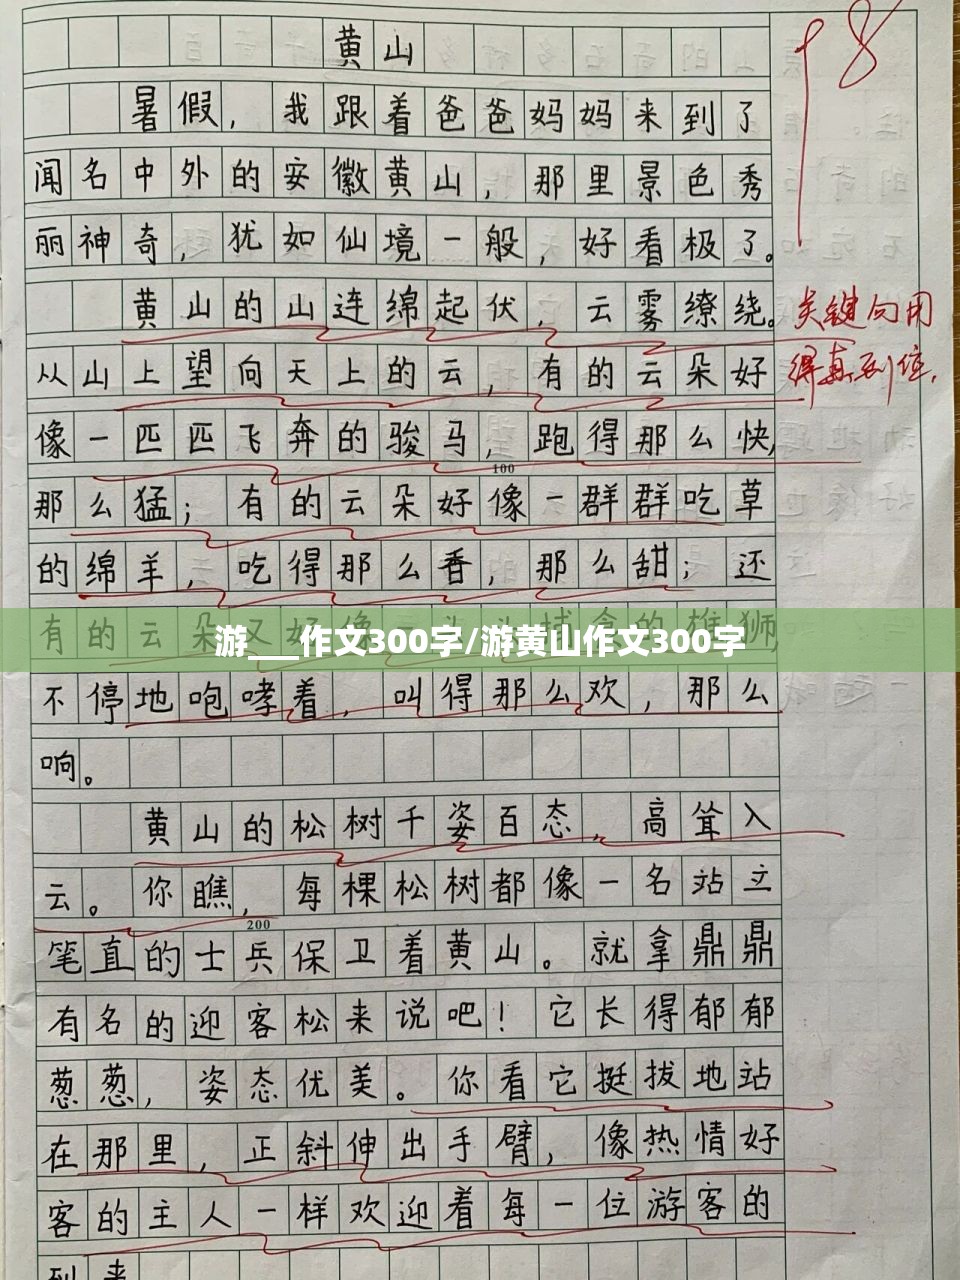 黄山
暑假，我跟着爸爸妈妈来到了
闻名中外的安徽黄山，那里景色秀
丽神奇，犹如仙境一般，好看极了。
黄山的山连绵起伏，云雾缭绕。
从山上望向天上的云，有的云朵好
像一匹匹飞奔的骏马，跑得那么快，
那么猛；有的云朵好像一群群吃草
的绵羊，吃得那么香，那么甜；还
有的云朵又好像一头头掉伞的雄狮，
游___作文300字/游黄山作文300字
不停地咆哮着，叫得那么欢，那么
响。
黄山的松树千姿百态，高耸入
云。你瞧，每棵松树都像一名站立
笔直的士兵保卫着黄山。就拿鼎鼎
有名的迎客松来说吧！它长得郁郁
葱葱，姿态优美。你看它挺拔地站
在那里，正斜伸出手臂，像热情好
客的主人一样欢迎着每一位游客的
到来
98
关键句用
得真到位，
100
200